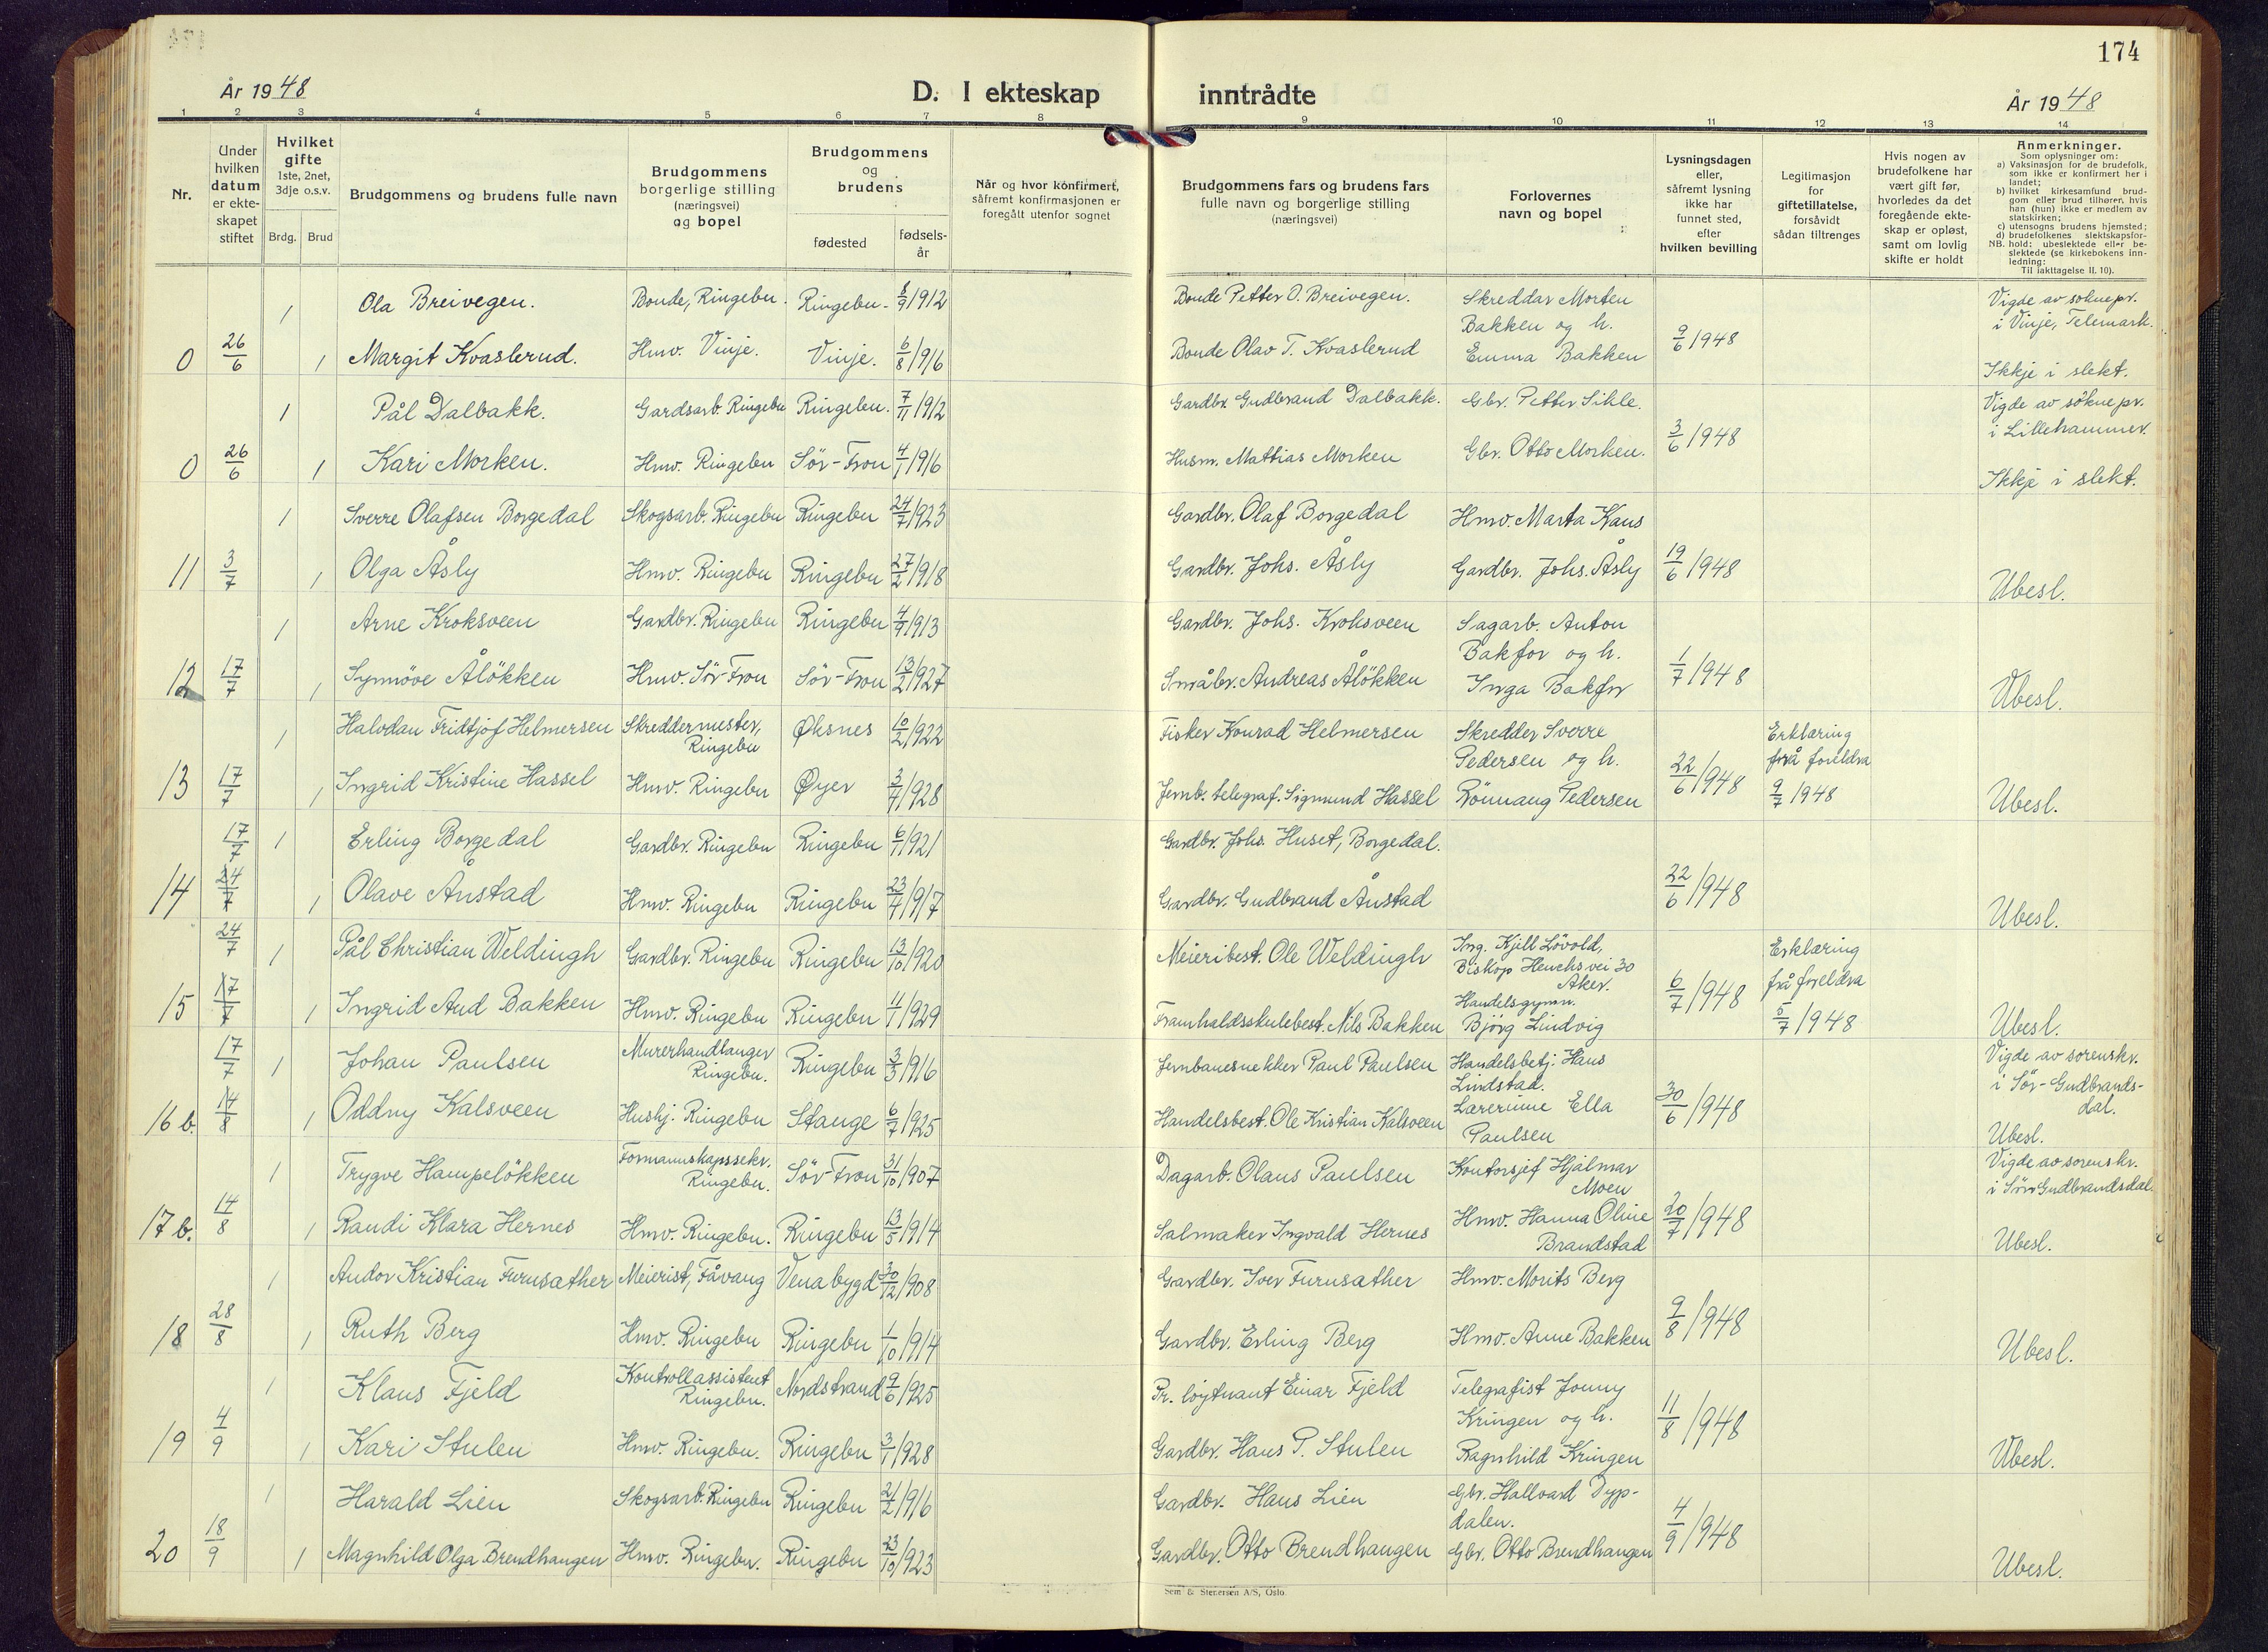 174
År 1948
D. I ekteskap inntrådte
År 1948
1 2 3 4 5 6 7 8 9 10 11 12 13 14
Nr.
Under hvilken datum er ekteskapet stiftet
Hvilket gifte 1ste, 2net, 3dje o.s.v.
Brdg. Brud
Brudgommens og brudens fulle navn
Brudgommens borgerlige stilling (næringsvei) og bopel
Brudgommens og brudens
fødested
fødsels-år
Når og hvor konfirmert, såfremt konfirmasjonen er foregått utenfor sognet
Brudgommens fars og brudens fars fulle navn og borgerlige stilling (næringsvei)
Forlovernes navn og bopel
Lysningsdagen eller, såfremt lysning ikke har funnet sted, efter hvilken bevilling
Legitimasjon for giftetillatelse, forsåvidt sådan tiltrenges
Hvis nogen av brudefolkene har vært gift før, hvorledes da det foregående ekteskap er opløst, samt om lovlig skifte er holdt
Anmerkninger.
Som oplysninger om:
a) Vaksinasjon for de brudefolk, som ikke er konfirmert her i landet;
b) hvilket kirkesamfund brudgom eller brud tilhører, hvis han (hun) ikke er medlem av statskirken;
c) utensogns brudens hjemsted;
d) brudefolkenes slektskapsforhold; ubeslektede eller beslektede (se kirkebokens innledning:
NB.
Til iakttagelse II. 10).
1 Ola Breivegen. Bonde, Ringebu. Ringebu. 8/9 1912 Bonde Petter O. Breivegen. Skreddar Morten Bakken og h. Vigde av soknepr. i Vinje, Telemark.
0 26/6 1 Margit Kvaslerud. Hmv. Vinje. Vinje. 6/8 1916 Bonde Olav T. Kvaslerud Emma Bakken 9/6 1948 Ikkje i slekt.
1 Pål Dalbakk. Gardsarb. Ringebu Ringebu. 7/11 1912 Gardbr. Gudbrand Dalbakk. Gbr. Petter Sikle. Vigde av søknepr. i Lillehammer.
0 26/6 1 Kari Morken. Hmv. Ringebu Sör-Fron 4/1 1916 Husm. Mattias Morken Gbr. Otto Morken. 3/6 1948 Ikkje i slekt.
1 Sverre Olafsen Borgedal Skogsarb. Ringebu Ringebu 24/7 1923 Gardbr. Olaf Borgedal Hmv. Marta Kaus
11 3/7 1 Olga Åsly Hmv. Ringebu Ringebu 27/2 1918 Gardbr. Johs. Åsly Gardbr. Johs. Åsly 19/6 1948 Ubesl.
1 Arne Kroksveen Gardbr. Ringebu Ringebu 4/9 1913 Gardbr. Johs. Kroksveen Sagarb. Anton Bakfor og h.
12 17/7 1 Synnöve Ålökken Hmv. Sör-Fron Sör-Fron 13/2 1927 Småbr. Andreas Ålökken Inga Bakfor 1/7 1948 Ubesl.
1 Halvdan Fridtjof Helmersen Skreddermester, Ringebu Øksnes 10/2 1922 Fisker Konrad Helmersen Skredder Sverre Pedersen og h. Erklæring frå foreldra
13 17/7 1 Ingrid Kristine Hassel Hmv. Ringebu Øyer 3/7 1928 Jernb. telegraf. Sigmund Hassel Rönnaug Pedersen 22/6 1948 9/7 1948 Ubesl.
17/7 1 Erling Borgedal Gardbr. Ringebu Ringebu 6/1 1921 Gardbr. Johs. Huset, Borgedal.
14 24/7 1 Olave Ånstad Hmv. Ringebu Ringebu 23/4 1917 Gardbr. Gudbrand Ånstad 22/6 1948 Ubesl.
24/7 1 Pål Christian Weldingh Gardbr. Ringebu Ringebu 13/10 1920 Meieribest. Ole Weldingh Ing. Kjell Lövold, Biskop Heuchs vei 30 Aker. Erklæring frå foreldra
15 17/7 1 Ingrid Aud Bakken Hmv. Ringebu Ringebu 11/1 1929 Framhaldsskulebest. Nils Bakken Handelsgymn. Bjørg Lindvig 6/7 1948 5/7 1948 Ubesl.
17/7 1 Johan Paulsen Murerhandlanger Ringebu. Ringebu 3/3 1916 Jernbanesnekker Paul Paulsen Handelsbetj. Hans Lindstad. Vigde av sorenskr. i Sör-Gudbrandsdal.
16 b. 14/8 1 Oddny Kalsveen Hushj. Ringebu Stange 6/7 1925 Handelsbest. Ole Kristian Kalsveen Lærerinne Ella Paulsen 30/6 1948 Ubesl.
1 Trygve Hampelökken Formannskapssekr. Ringebu. Sör-Fron 31/10 1907 Dagarb. Olaus Paulsen Kontorsjef Hjalmar Moen Vigde av sorenskr. i Sør Gudbrandsdal.
17 b. 14/8 1 Randi Klara Hernes Hmv. Ringebu. Ringebu 13/5 1914 Salmaker Ingvald Hernes Hmv. Hanna Oline Brandstad 20/7 1948 Ubesl.
1 Andor Kristian Furusæther Meierist, Fåvang Venabygd 30/12 1908 Gardbr. Iver Furusæther Hmv. Morits Berg
18 28/8 1 Ruth Berg Hmv. Ringebu Ringebu 1/10 1914 Gardbr. Erling Berg Hmv. Anne Bakken 9/8 1948 Ubesl.
1 Klaus Fjeld Kontrollassistent Ringebu. Nordstrand 9/6 1925 Pr. løytnant Einar Fjeld Telegrafist Jonny Kringen og h.
19 4/9 1 Kari Stulen Hmv. Ringebu. Ringebu 3/1 1928 Gardbr. Hans P. Stulen Ragnhild Kringen 11/8 1948 Ubesl.
1 Harald Lien Skogsarb. Ringebu Ringebu 21/2 1916 Gardbr. Hans Lien Gbr. Hallvard Dypdalen.
20 18/9 1 Magnhild Olga Brendhaugen Hmv. Ringebu. Ringebu 23/10 1923 Gardbr. Otto Brendhaugen Gbr. Otto Brendhaugen 4/9 1948 Ubesl.
Sem & Stenersen A/S, Oslo